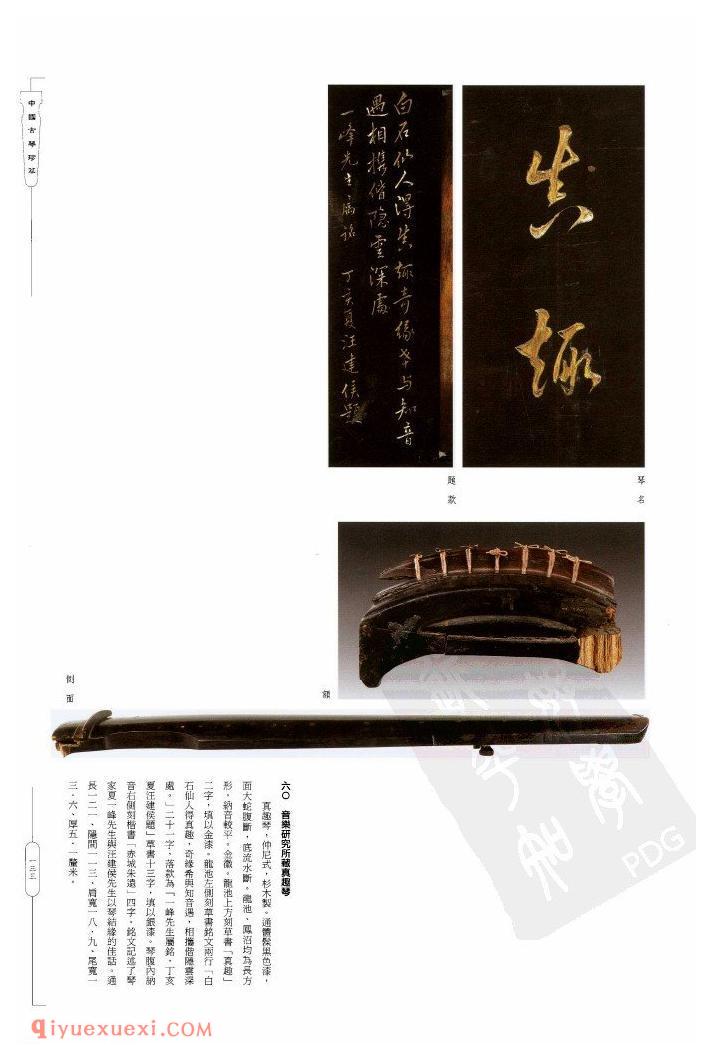 中國古琴珍萃
真趣
白石仙人得真趣奇緣希与知音
遇相携偕隐雲深處
一峰先生属銘　丁亥夏汪建侯題
琴名
題款
額
側面
六〇　音樂研究所藏真趣琴
真趣琴，仲尼式，杉木製。通體髹黑色漆，
面大蛇腹斷，底流水斷。龍池、鳳沼均為長方
形，納音較平。金徽。龍池上方刻草書「真趣」
二字，填以金漆。龍池左側刻草書銘文兩行「白
石仙人得真趣，奇緣希與知音遇，相攜偕隱雲深
處。」二十一字，落款為「一峰先生屬銘，丁亥
夏汪建侯題」草書十三字，填以銀漆。琴腹內納
音右側刻楷書「赤城朱遠」四字，銘文記述了琴
家夏一峰先生與汪建侯先生以琴結緣的佳話。通
長一二一、隱間一一三、肩寬一八·九、尾寬一
三·六、厚五·一釐米。
一三三
PDG
Qiyuexuexi.COM